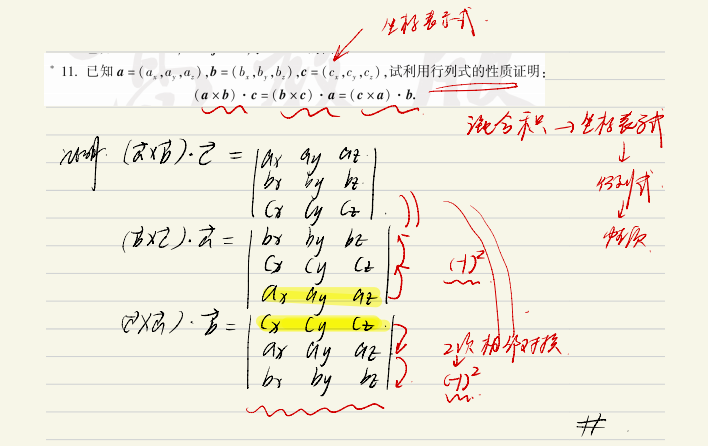 坐标表示式.
* 11. 已知 a=(a_x,a_y,a_z),b=(b_x,b_y,b_z),c=(c_x,c_y,c_z),试利用行列式的性质证明:
(a×b)·c=(b×c)·a=(c×a)·b.
混合积 → 坐标表示式
↓
行列式
↓
性质
证明. (a⃗×b⃗)·c⃗ = | ax ay az |
| bx by bz |
| cx cy cz |
(b⃗×c⃗)·a⃗ = | bx by bz |
| cx cy cz | (-1)²
| ax ay az |
(c⃗×a⃗)·b⃗ = | cx cy cz |
| ax ay az | 2次相邻对换
| bx by bz | (-1)²
#